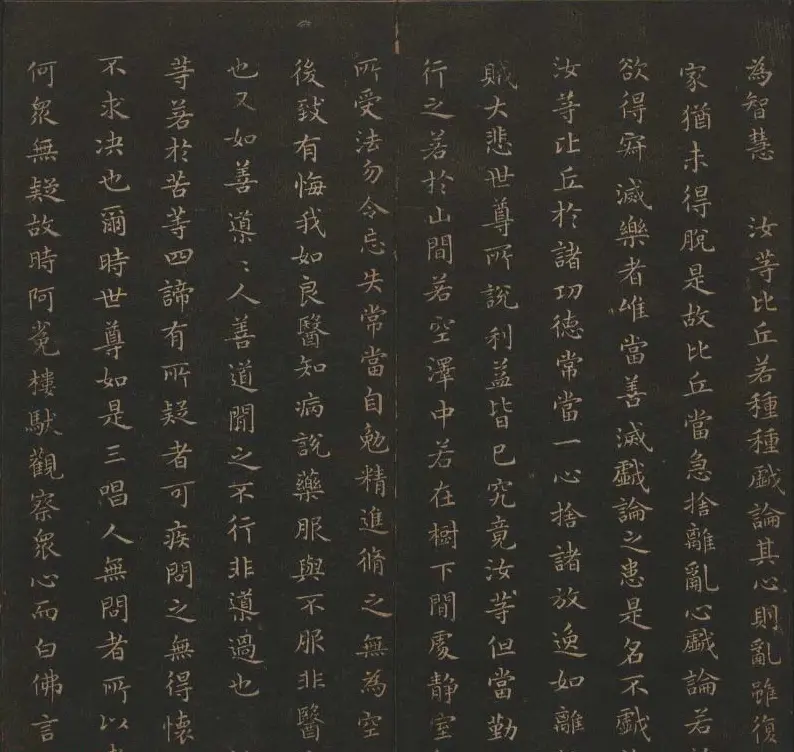 為智慧　汝等比丘若種種戱論其心則亂雖復
家猶未得脫是故比丘當急捨離亂心戱論若
欲得寂滅樂者唯當善滅戱論之患是名不戱
汝等比丘於諸功德常當一心捨諸放逸如離
賊大悲世尊所說利益皆已究竟汝等但當勤
行之若於山間若空澤中若在樹下閒處靜室
所受法勿令忘失常當自勉精進脩之無為空
後致有悔我如良醫知病說藥服與不服非醫
也又如善導〻人善道聞之不行非導過也
等若於苦等四諦有所疑者可疾問之無得懷
不求决也爾時世尊如是三唱人無問者所以
何眾無疑故時阿㝹樓馱觀察眾心而白佛言